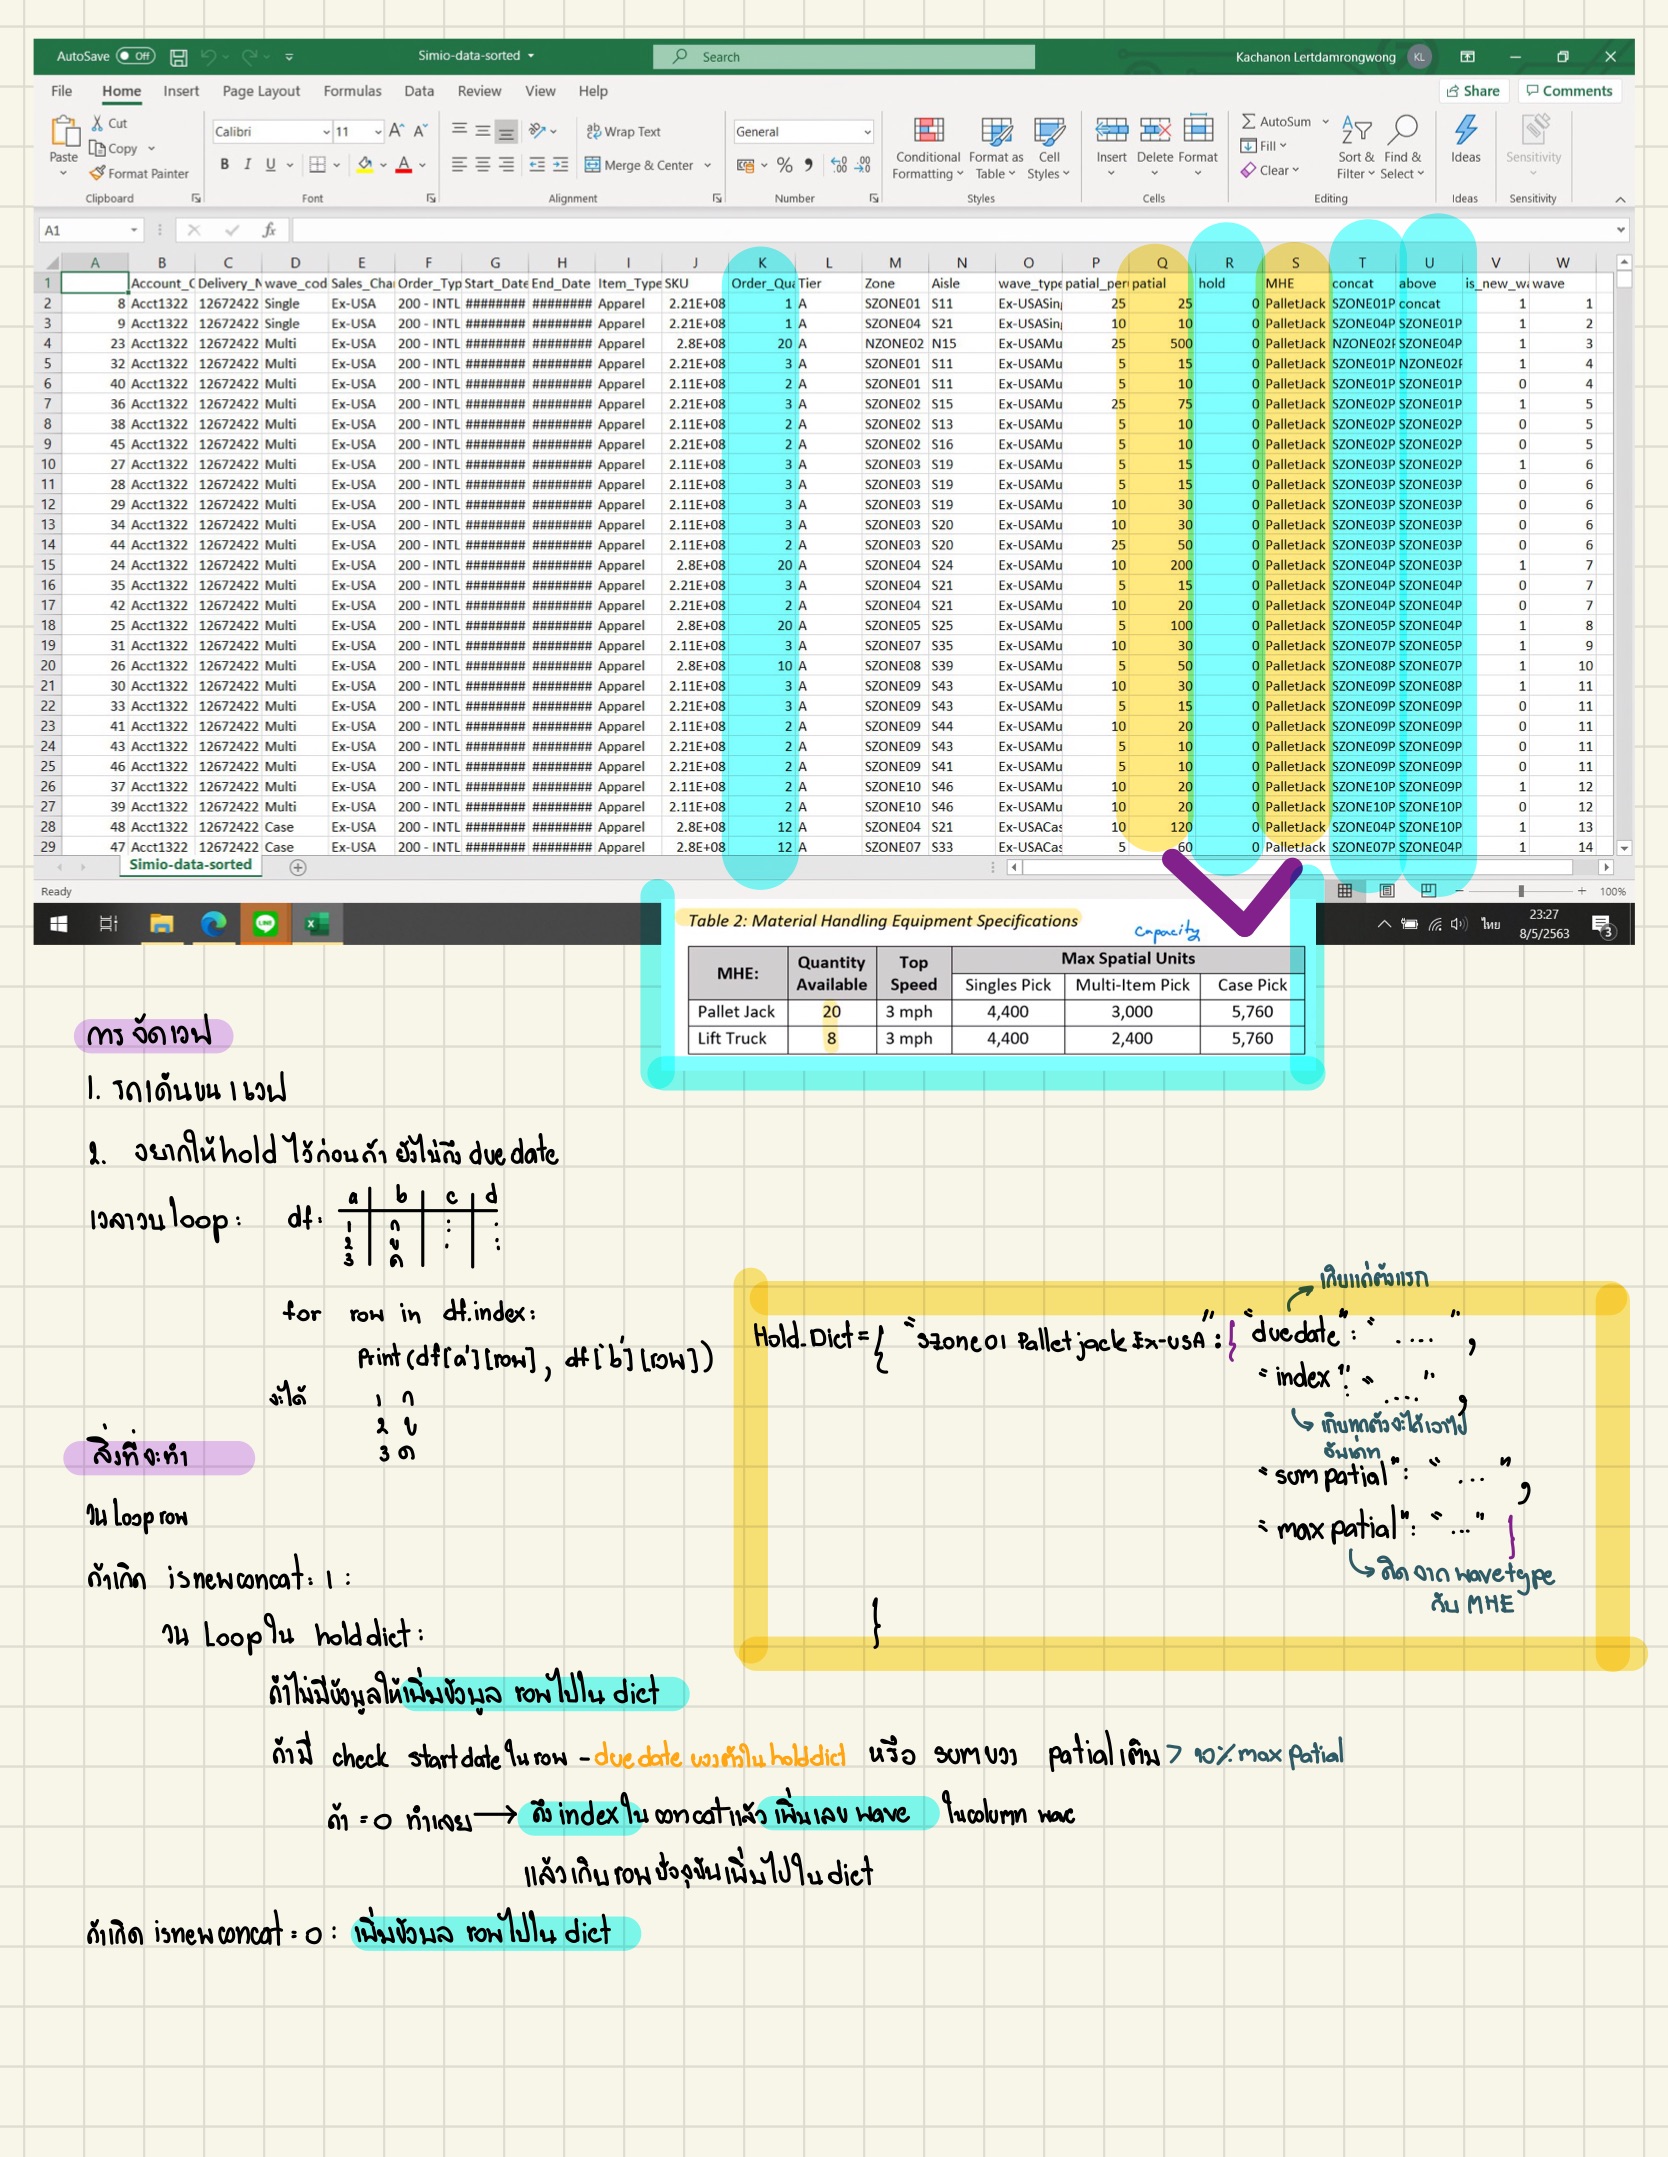 AutoSave Off Simio-data-sorted Search Kachanon Lertdamrongwong KL
File Home Insert Page Layout Formulas Data Review View Help Share Comments
Cut Calibri 11 Wrap Text General AutoSum
Paste Copy Fill
Format Painter B I U Merge & Center Conditional Formatting Format as Table Cell Styles Insert Delete Format Clear Sort & Filter Find & Select Ideas Sensitivity
Clipboard Font Alignment Number Styles Cells Editing Ideas Sensitivity
A1 fx
A B C D E F G H I J K L M N O P Q R S T U V W
1 Account_C Delivery_N wave_cod Sales_Cha Order_Typ Start_Date End_Date Item_Type SKU Order_Qua Tier Zone Aisle wave_type patial_per patial hold MHE concat above is_new_wa wave
2 8 Acct1322 12672422 Single Ex-USA 200 - INTL ######## ######## Apparel 2.21E+08 1 A SZONE01 S11 Ex-USASin 25 25 0 PalletJack SZONE01P concat 1 1
3 9 Acct1322 12672422 Single Ex-USA 200 - INTL ######## ######## Apparel 2.21E+08 1 A SZONE04 S21 Ex-USASin 10 10 0 PalletJack SZONE04P SZONE01P 1 2
4 23 Acct1322 12672422 Multi Ex-USA 200 - INTL ######## ######## Apparel 2.8E+08 20 A NZONE02 N15 Ex-USAMu 25 500 0 PalletJack NZONE02F SZONE04P 1 3
5 32 Acct1322 12672422 Multi Ex-USA 200 - INTL ######## ######## Apparel 2.21E+08 3 A SZONE01 S11 Ex-USAMu 5 15 0 PalletJack SZONE01P NZONE02F 1 4
6 40 Acct1322 12672422 Multi Ex-USA 200 - INTL ######## ######## Apparel 2.11E+08 2 A SZONE01 S11 Ex-USAMu 5 10 0 PalletJack SZONE01P SZONE01P 0 4
7 36 Acct1322 12672422 Multi Ex-USA 200 - INTL ######## ######## Apparel 2.21E+08 3 A SZONE02 S15 Ex-USAMu 25 75 0 PalletJack SZONE02P SZONE01P 1 5
8 38 Acct1322 12672422 Multi Ex-USA 200 - INTL ######## ######## Apparel 2.11E+08 2 A SZONE02 S13 Ex-USAMu 5 10 0 PalletJack SZONE02P SZONE02P 0 5
9 45 Acct1322 12672422 Multi Ex-USA 200 - INTL ######## ######## Apparel 2.21E+08 2 A SZONE02 S16 Ex-USAMu 5 10 0 PalletJack SZONE02P SZONE02P 0 5
10 27 Acct1322 12672422 Multi Ex-USA 200 - INTL ######## ######## Apparel 2.11E+08 3 A SZONE03 S19 Ex-USAMu 5 15 0 PalletJack SZONE03P SZONE02P 1 6
11 28 Acct1322 12672422 Multi Ex-USA 200 - INTL ######## ######## Apparel 2.11E+08 3 A SZONE03 S19 Ex-USAMu 5 15 0 PalletJack SZONE03P SZONE03P 0 6
12 29 Acct1322 12672422 Multi Ex-USA 200 - INTL ######## ######## Apparel 2.11E+08 3 A SZONE03 S19 Ex-USAMu 10 30 0 PalletJack SZONE03P SZONE03P 0 6
13 34 Acct1322 12672422 Multi Ex-USA 200 - INTL ######## ######## Apparel 2.11E+08 3 A SZONE03 S20 Ex-USAMu 10 30 0 PalletJack SZONE03P SZONE03P 0 6
14 44 Acct1322 12672422 Multi Ex-USA 200 - INTL ######## ######## Apparel 2.11E+08 2 A SZONE03 S20 Ex-USAMu 25 50 0 PalletJack SZONE03P SZONE03P 0 6
15 24 Acct1322 12672422 Multi Ex-USA 200 - INTL ######## ######## Apparel 2.8E+08 20 A SZONE04 S24 Ex-USAMu 10 200 0 PalletJack SZONE04P SZONE03P 1 7
16 35 Acct1322 12672422 Multi Ex-USA 200 - INTL ######## ######## Apparel 2.21E+08 3 A SZONE04 S21 Ex-USAMu 5 15 0 PalletJack SZONE04P SZONE04P 0 7
17 42 Acct1322 12672422 Multi Ex-USA 200 - INTL ######## ######## Apparel 2.21E+08 2 A SZONE04 S21 Ex-USAMu 10 20 0 PalletJack SZONE04P SZONE04P 0 7
18 25 Acct1322 12672422 Multi Ex-USA 200 - INTL ######## ######## Apparel 2.8E+08 20 A SZONE05 S25 Ex-USAMu 5 100 0 PalletJack SZONE05P SZONE04P 1 8
19 31 Acct1322 12672422 Multi Ex-USA 200 - INTL ######## ######## Apparel 2.11E+08 3 A SZONE07 S35 Ex-USAMu 10 30 0 PalletJack SZONE07P SZONE05P 1 9
20 26 Acct1322 12672422 Multi Ex-USA 200 - INTL ######## ######## Apparel 2.8E+08 10 A SZONE08 S39 Ex-USAMu 5 50 0 PalletJack SZONE08P SZONE07P 1 10
21 30 Acct1322 12672422 Multi Ex-USA 200 - INTL ######## ######## Apparel 2.11E+08 3 A SZONE09 S43 Ex-USAMu 10 30 0 PalletJack SZONE09P SZONE08P 1 11
22 33 Acct1322 12672422 Multi Ex-USA 200 - INTL ######## ######## Apparel 2.21E+08 3 A SZONE09 S43 Ex-USAMu 5 15 0 PalletJack SZONE09P SZONE09P 0 11
23 41 Acct1322 12672422 Multi Ex-USA 200 - INTL ######## ######## Apparel 2.11E+08 2 A SZONE09 S44 Ex-USAMu 10 20 0 PalletJack SZONE09P SZONE09P 0 11
24 43 Acct1322 12672422 Multi Ex-USA 200 - INTL ######## ######## Apparel 2.21E+08 2 A SZONE09 S43 Ex-USAMu 5 10 0 PalletJack SZONE09P SZONE09P 0 11
25 46 Acct1322 12672422 Multi Ex-USA 200 - INTL ######## ######## Apparel 2.21E+08 2 A SZONE09 S41 Ex-USAMu 5 10 0 PalletJack SZONE09P SZONE09P 0 11
26 37 Acct1322 12672422 Multi Ex-USA 200 - INTL ######## ######## Apparel 2.11E+08 2 A SZONE10 S46 Ex-USAMu 10 20 0 PalletJack SZONE10P SZONE09P 1 12
27 39 Acct1322 12672422 Multi Ex-USA 200 - INTL ######## ######## Apparel 2.11E+08 2 A SZONE10 S46 Ex-USAMu 10 20 0 PalletJack SZONE10P SZONE10P 0 12
28 48 Acct1322 12672422 Case Ex-USA 200 - INTL ######## ######## Apparel 2.8E+08 12 A SZONE04 S21 Ex-USACas 10 120 0 PalletJack SZONE04P SZONE10P 1 13
29 47 Acct1322 12672422 Case Ex-USA 200 - INTL ######## ######## Apparel 2.8E+08 12 A SZONE07 S33 Ex-USACas 5 60 0 PalletJack SZONE07P SZONE04P 1 14
Simio-data-sorted
Ready 100%
ไทย 23:27 8/5/2563 3
Table 2: Material Handling Equipment Specifications
Capacity
MHE: Quantity Available Top Speed Max Spatial Units
Singles Pick Multi-Item Pick Case Pick
Pallet Jack 20 3 mph 4,400 3,000 5,760
Lift Truck 8 3 mph 4,400 2,400 5,760
การจัดเวฟ
1. รถ 1 คันขน 1 เวฟ
2. อยากให้ hold ไว้ก่อนถ้ายังไม่ถึง due date
เวลาวน loop: df: a b c d
1 ก
2 ข
3 ค
for row in df.index:
Print (df['a'][row], df['b'][row])
จะได้ 1 ก
2 ข
3 ค
สิ่งที่จะทำ
วน loop row
ถ้าเกิด isnewconcat: 1 :
วน Loop ใน holddict:
ถ้าไม่มีข้อมูลให้เพิ่มข้อมูล row ไปใน dict
ถ้ามี check startdate ใน row - due date ของตัวใน holddict หรือ sum ของ patial เดิม > 90% max patial
ถ้า = 0 ทำเลย → ดึง index ใน concat แล้วเพิ่มเลข wave ใน column wave
แล้วเก็บ row ปัจจุบันเพิ่มไปใน dict
ถ้าเกิด isnewconcat = 0 : เพิ่มข้อมูล row ไปใน dict
เก็บแค่ตัวแรก
Hold_Dict = { "Szone01 Palletjack Ex-USA" : { "duedate" : "....",
"index" : "....",
เก็บทุกตัวจะได้เอาไป
อัพเดท
"sum patial" : "...",
"max patial" : "..." }
คิดจาก wavetype
กับ MHE
}